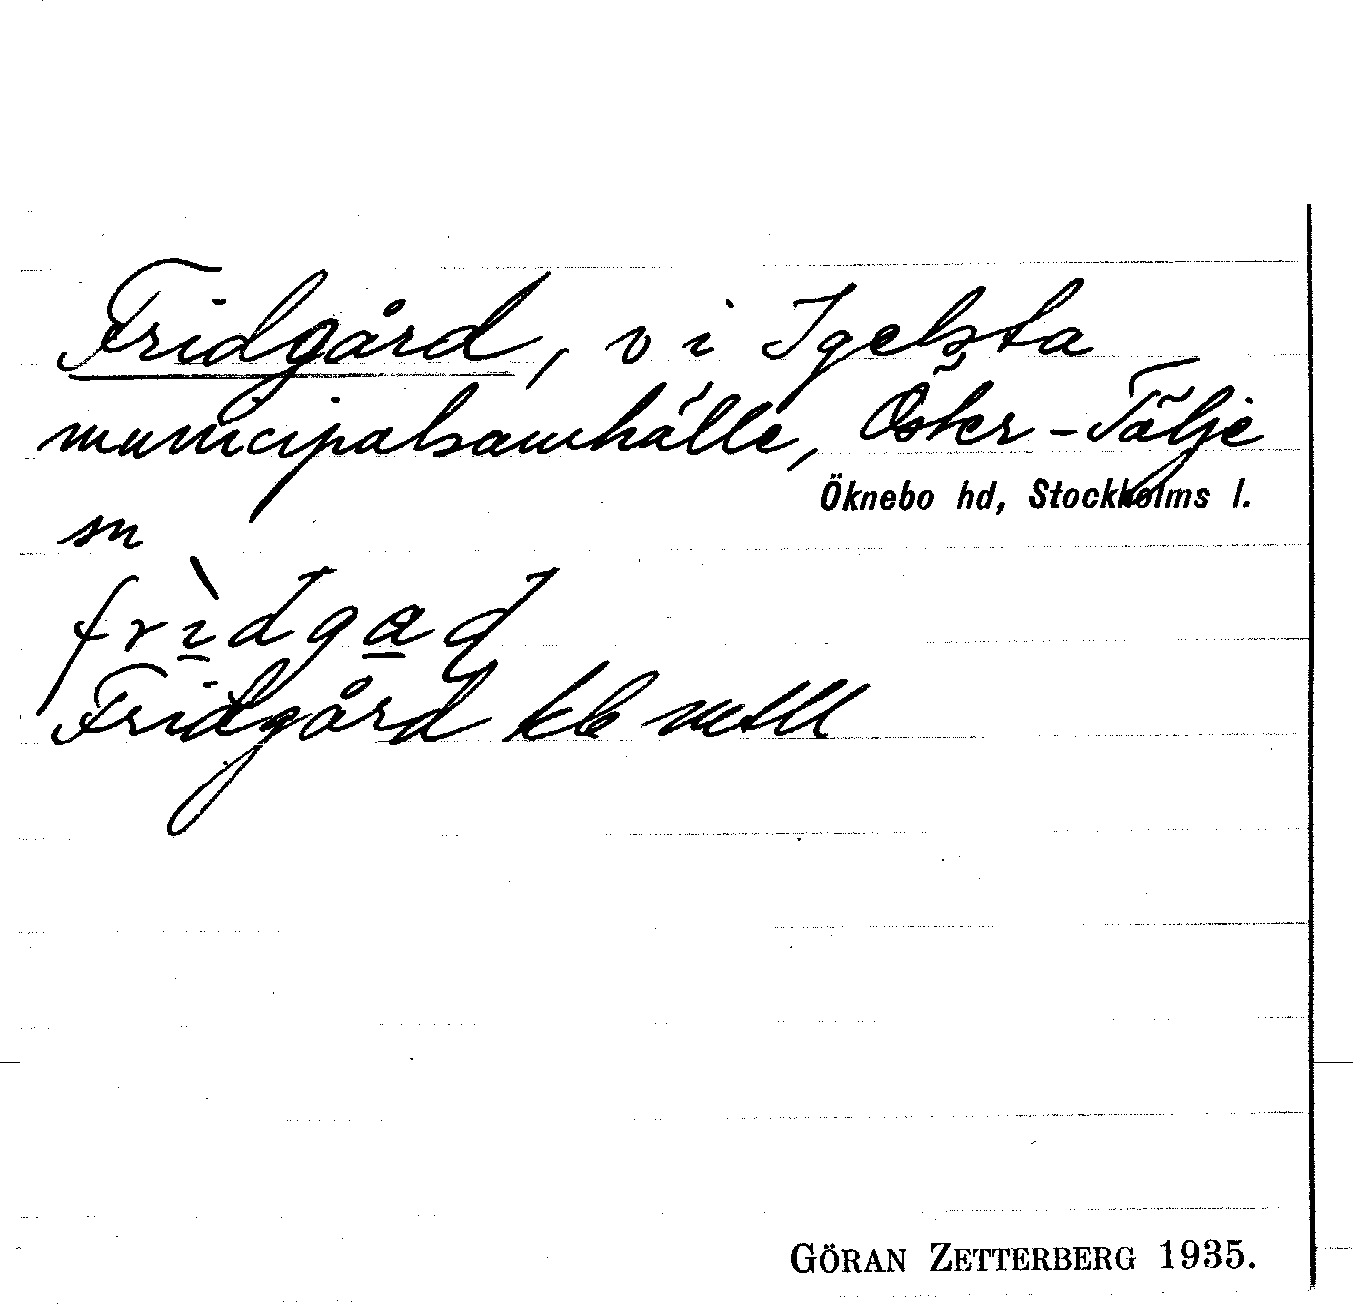 Fridgård, v i Igelsta
municipalsamhälle, Öster-Tälje
Öknebo hd, Stockholms l.
sn
frìdgad
Fridgård kb mtll
GÖRAN ZETTERBERG 1935.